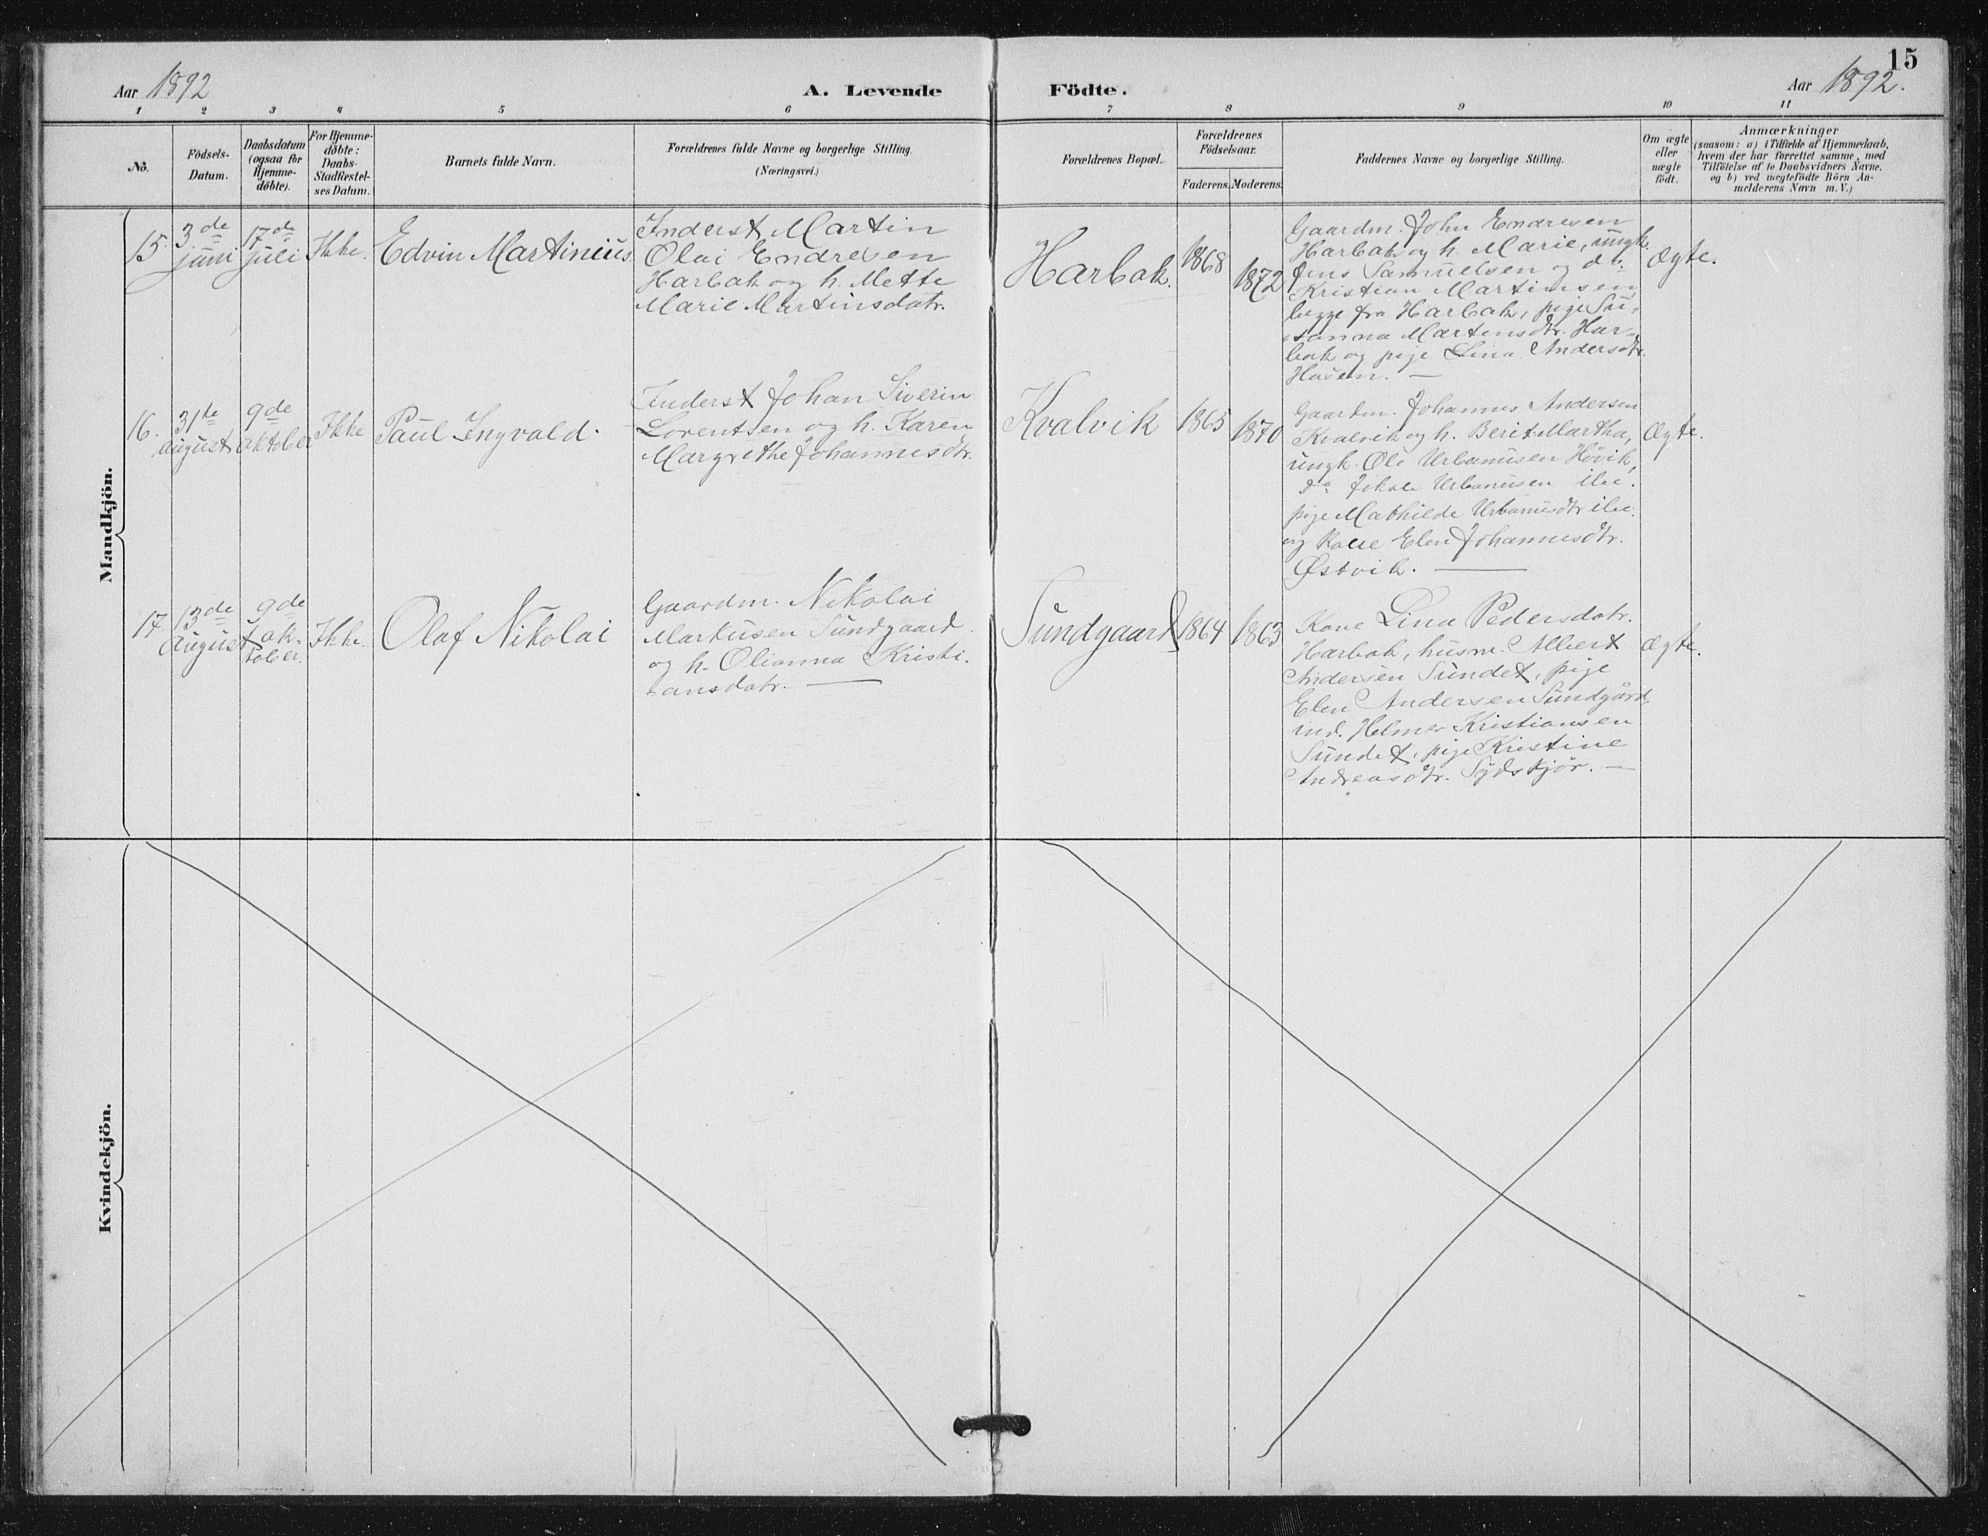 15
Aar 1892 A. Levende Födte. Aar 1892.
1 2 3 4 5 6 7 8 9 10 11
No.
Födsels-
Datum.
Daabsdatum
(ogsaa for
Hjemme-
døbte).
For Hjemme-
døbte:
Daabs-
Stadfæstel-
ses Datum.
Barnets fulde Navn.
Forældrenes fulde Navne og borgerlige Stilling.
(Næringsvei.)
Forældrenes Bopæl.
Forældrenes
Födselsaar.
Faderens. Moderens.
Faddernes Navne og borgerlige Stilling.
Om ægte
eller
uægte
født.
Anmærkninger
(saasom: a) i Tilfælde af Hjemmedaab,
hvem der har forrettet samme, med
Tilföielse af to Daabsvidners Navne.
og b) ved uægtefødte Börn An-
melderens Navn m. V.)
Mandkjön.
15.
3de
juni
17de
juli
Ikke.
Edvin Martinius.
Inderst Martin
Olai Endresen
Harbak og h. Mette
Marie Martinsdatr.
Harbak.
1868
1872
Gaardm. John Endresen
Harbak og h. Marie, ungk.
Jens Samuelsen og do
Kristian Martinsen,
begge fra Harbak, pige Su-
sanna Martensdtr. Har-
bak og pige Lina Andersdtr.
Hasen. —
Ægte.
16.
31te
august
9de
oktober
Ikke
Paul Ingvald.
Inderst Johan Siverin
Lorentsen og h. Karen
Margrethe Johannesdtr.
Kvalvik
1865
1870
Gaardm. Johannes Andersen
Kvalvik og h. Berit Martha,
ungk. Ole Urbanusen Høvik,
do Johan Urbanusen ibd.
pige Mathilde Urbanusdtr ibd.
og Kone Elen Johannesdtr.
Østvik. —
Ægte.
17.
13de
august
9de
ok-
tober.
Ikke.
Olaf Nikolai
Gaardm. Nikolai
Markusen Sundgaard
og h. Olianna Kristi-
ansdatr. —
Sundgaard
1864
1863
Kone Lina Pedersdatr.
Harbak, husm. Albert
Andersen Sundet, pige
Elen Andersen Sundgård,
ind. Helmer Kristiansen
Sundet, pige Kristine
Andreasdtr. Sydskjør. —
Ægte.
Kvindekjön.